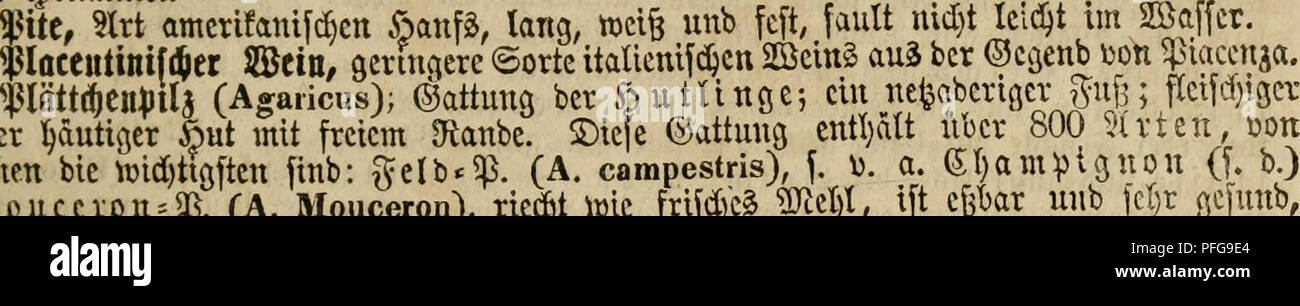 Pite, Art amerikanischen Hanfs, lang, weiß und fest, fault nicht leicht im Wasser.
Placentinischer Wein, geringere Sorte italienischen Weins aus der Gegend von Piacenza.
Plättchenpilz (Agaricus); Gattung der Hutlinge; ein netzaderiger Fuß; fleischiger
er häutiger Hut mit freiem Rande. Diese Gattung enthält über 800 Arten, von
nen die wichtigsten sind: Feld-P. (A. campestris), s. v. a. Champignon (s. d.)
ouceron-P. (A. Mouceron), riecht wie frisches Mehl, ist eßbar und sehr gesund,
alamy
alamy
Image ID: PFG9E4
www.alamy.com